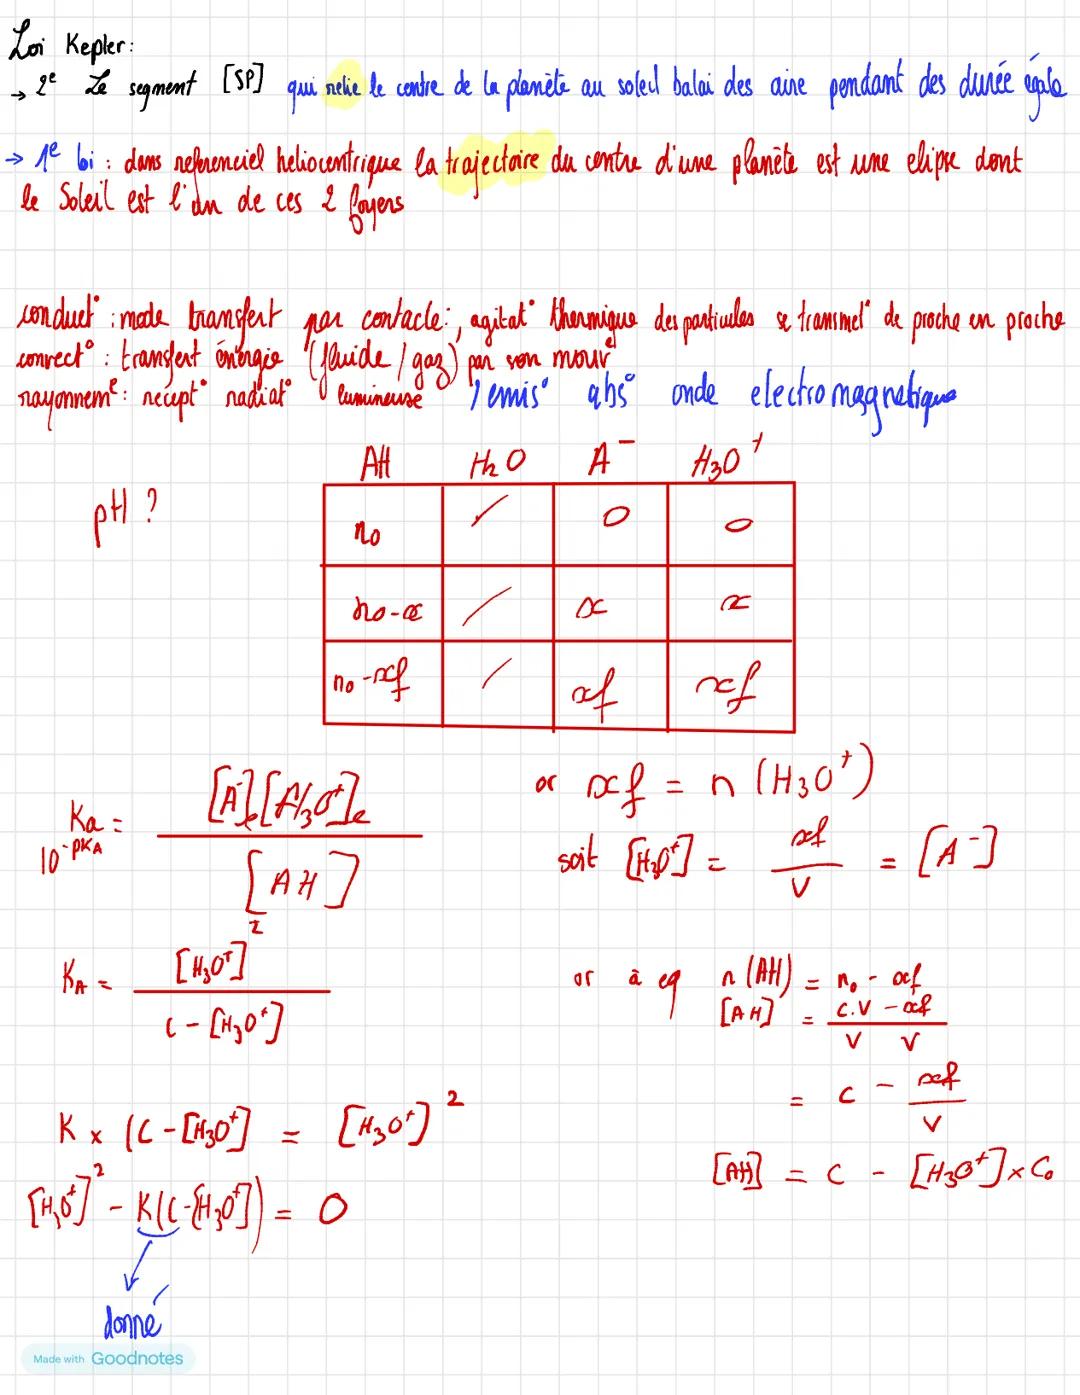 Loi Kepler:
→ 2e Le segment [SP] qui relie le centre de la planète au soleil balai des aire pendant des durée égale
→ 1e loi : dans referenciel heliocentrique la trajectoire du centre d'une planète est une elipse dont
le Soleil est l'un de ces 2 foyers
conduct° : mode transfert par contacte :, agitat° thermique des particules se transmet de proche en proche
convect° : transfert énergie (fluide / gaz) par son mouvt
rayonnemt : récept° radiat° lumineuse / emis° abs° onde electromagnetique
AH H2O A⁻ H3O⁺
pH ?
n0 / 0 0
n0-x / x x
n0-xf / xf xf
Ka = [A⁻]e[H3O⁺]e / [AH]
10^-pKA
or xf = n (H3O⁺)
soit [H3O⁺] = xf / V = [A⁻]
KA = [H3O⁺]² / C - [H3O⁺]
or à eq n (AH) = n0 - xf
[AH] = C.V - xf / V V
= C - xf / V
[AH] = C - [H3O⁺] x C0
K x (C - [H3O⁺] = [H3O⁺]²
[H3O⁺]² - K(C-[H3O⁺]) = 0
donné
Made with Goodnotes